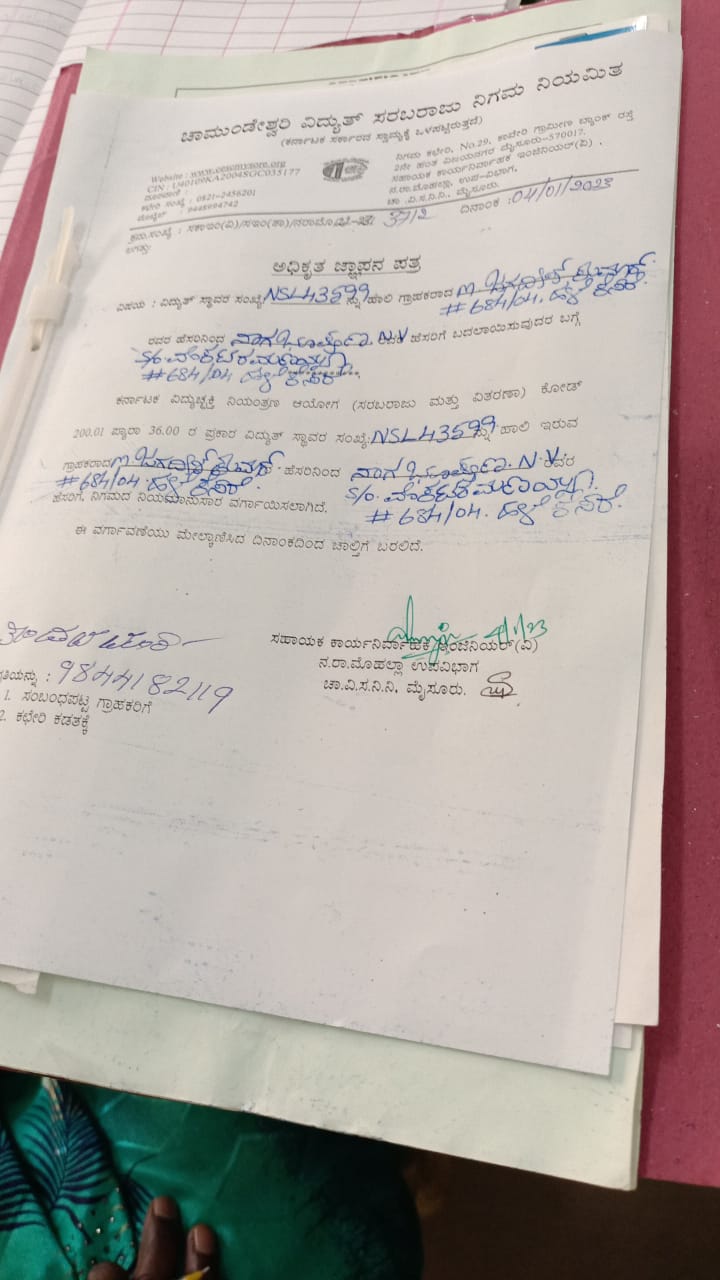 ಚಾಮುಂಡೇಶ್ವರಿ ವಿದ್ಯುತ್ ಸರಬರಾಜು ನಿಗಮ ನಿಯಮಿತ
(ಕರ್ನಾಟಕ ಸರ್ಕಾರದ ಸ್ವಾಮ್ಯಕ್ಕೆ ಒಳಪಟ್ಟಿರುತ್ತದೆ)
Website : www.cescmysore.org
CIN : U40109KA2004SGC035177
ದೂರವಾಣಿ :
ಕಛೇರಿ ಸಂಖ್ಯೆ : 0821-2456201
ಮೊಬೈಲ್ : 9448994742
ನಿಗಮ ಕಛೇರಿ, No.29, ಕಾವೇರಿ ಗ್ರಾಮೀಣ ಬ್ಯಾಂಕ್ ರಸ್ತೆ
2ನೇ ಹಂತ ವಿಜಯನಗರ ಮೈಸೂರು-570017.
ಸಹಾಯಕ ಕಾರ್ಯನಿರ್ವಾಹಕ ಇಂಜಿನಿಯರ್(ವಿ) ,
ನ.ರಾ.ಮೊಹಲ್ಲಾ, ಉಪ-ವಿಭಾಗ,
ಚಾ .ವಿ.ಸ.ನಿ.ನಿ., ಮೈಸೂರು.
ಕ್ರಮ.ಸಂಖ್ಯೆ : ಸಕಾಇಂ(ವಿ)/ಸಇಂ(ತಾ)/ನರಾಮೊ/22-23/ 3712 ದಿನಾಂಕ :04/01/2023
ಲಗತ್ತು:
ಅಧಿಕೃತ ಜ್ಞಾಪನ ಪತ್ರ
ವಿಷಯ : ವಿದ್ಯುತ್ ಸ್ಥಾವರ ಸಂಖ್ಯೆ:NSL43599ನ್ನು ಹಾಲಿ ಗ್ರಾಹಕರಾದ M. ಜಗದೀಶ್ ಕುಮಾರ್.
# 684/04. ಹಳೆ ಕೆಸರೆ.
ರವರ ಹೆಸರಿನಿಂದ ನಾಗಭೂಷಣ. N.V ರವರ ಹೆಸರಿಗೆ ಬದಲಾಯಿಸುವುದರ ಬಗ್ಗೆ
S/o. ವೆಂಕಟರಮಣಯ್ಯ
# 684/04 ಹಳೆ ಕೆಸರೆ
ಕರ್ನಾಟಕ ವಿದ್ಯುಚ್ಛಕ್ತಿ ನಿಯಂತ್ರಣ ಆಯೋಗ (ಸರಬರಾಜು ಮತ್ತು ವಿತರಣಾ) ಕೋಡ್
200.01 ಪ್ಯಾರಾ 36.00 ರ ಪ್ರಕಾರ ವಿದ್ಯುತ್ ಸ್ಥಾವರ ಸಂಖ್ಯೆ:NSL43599ನ್ನು ಹಾಲಿ ಇರುವ
ಗ್ರಾಹಕರಾದ M. ಜಗದೀಶ್ ಕುಮಾರ್ ಹೆಸರಿನಿಂದ ನಾಗಭೂಷಣ. N.V ರವರ
# 684/04. ಹಳೆ ಕೆಸರೆ. S/o. ವೆಂಕಟರಮಣಯ್ಯ.
ಹೆಸರಿಗೆ, ನಿಗಮದ ನಿಯಮಾನುಸಾರ ವರ್ಗಾಯಿಸಲಾಗಿದೆ. # 684/04. ಹಳೆ ಕೆಸರೆ.
ಈ ವರ್ಗಾವಣೆಯು ಮೇಲ್ಕಾಣಿಸಿದ ದಿನಾಂಕದಿಂದ ಚಾಲ್ತಿಗೆ ಬರಲಿದೆ.
4/1/23
ಸಹಾಯಕ ಕಾರ್ಯನಿರ್ವಾಹಕ ಇಂಜಿನಿಯರ್(ವಿ)
ನ.ರಾ.ಮೊಹಲ್ಲಾ ಉಪವಿಭಾಗ
ಚಾ.ವಿ.ಸ.ನಿ.ನಿ, ಮೈಸೂರು.
ತಿಯನ್ನು : 9844182119
1. ಸಂಬಂಧಪಟ್ಟ ಗ್ರಾಹಕರಿಗೆ
2. ಕಛೇರಿ ಕಡತಕ್ಕೆ